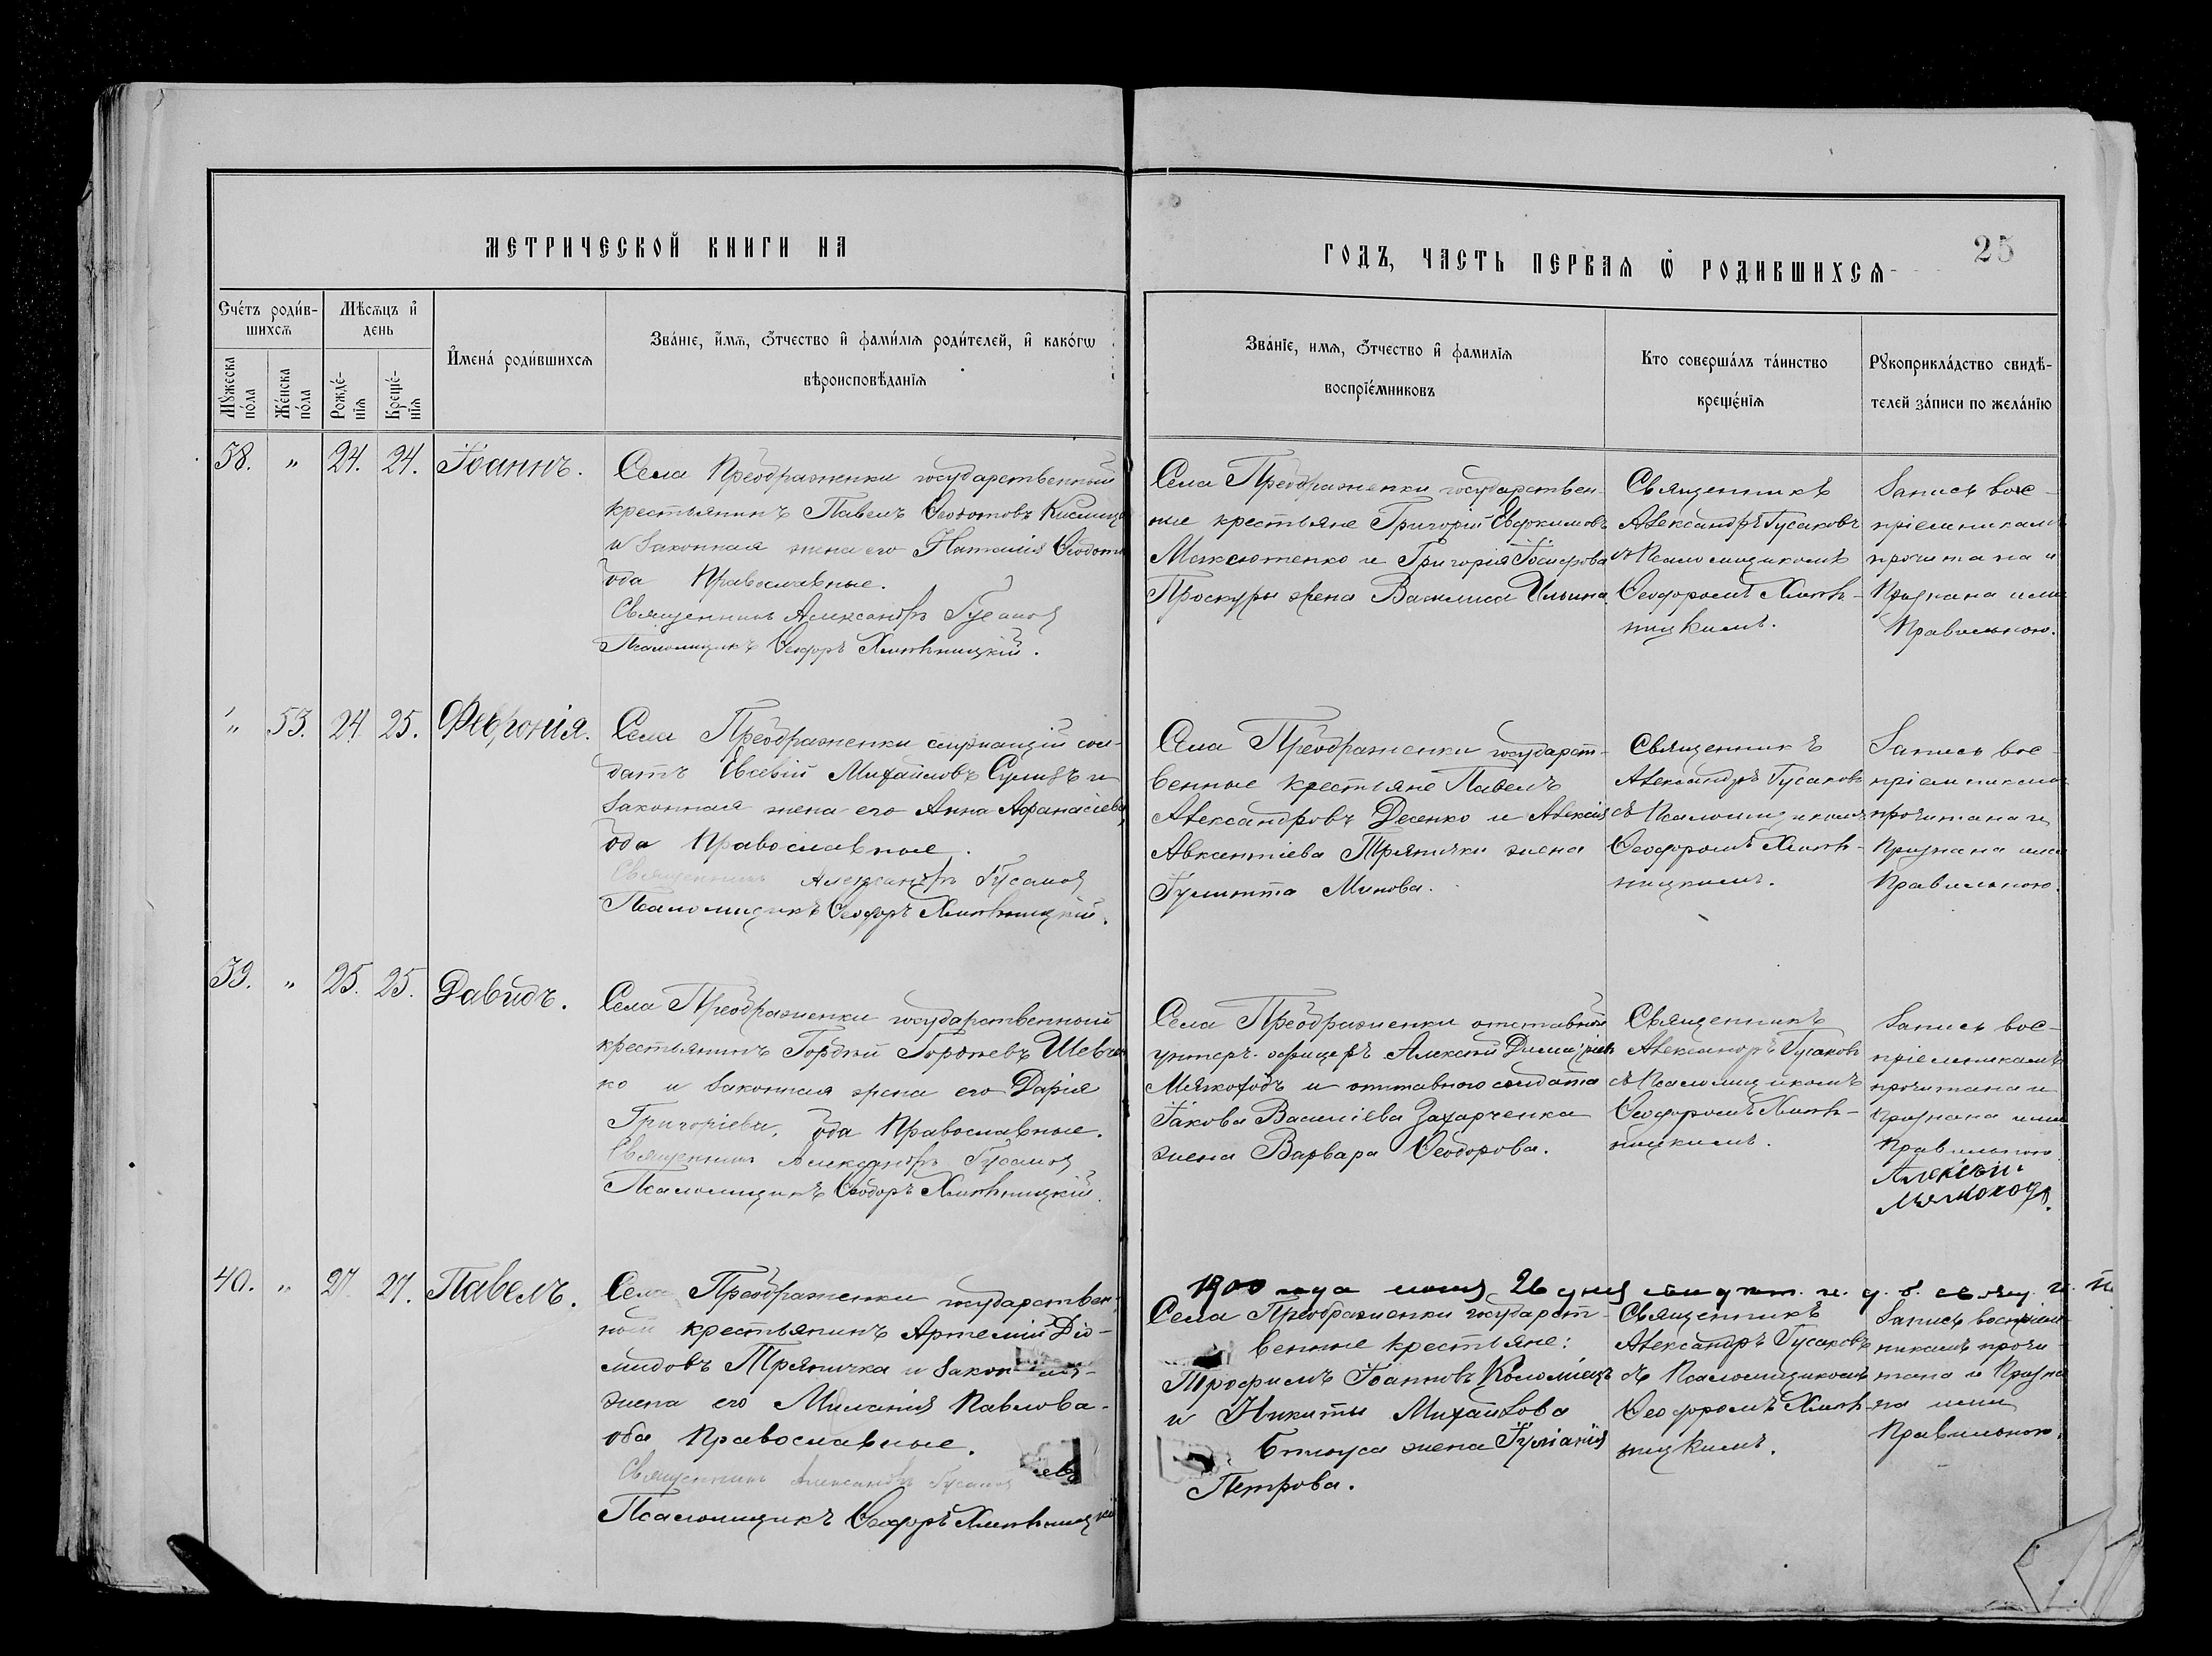 МЕТРИЧЕСКОЙ КНИГИ НА
ГОДЪ, ЧАСТЬ ПЕРВАЯ Ѡ РОДИВШИХСѦ
25
Сче́тъ роди́в-
шихсѧ
Мѣсѧцъ и҆
день
Мꙋжеска по́ла
Же́нска по́ла
Рожде́-нїѧ
Креще́-нїѧ
И҆мена̀ роди́вшихсѧ
Зва́нїе, и҆́мѧ, ѻ҆́тчество и҆ фами́лїѧ роди́телей, и҆ како́гѡ
вѣроисповѣ́данїѧ
Зва́нїе, имѧ, ѻ҆́тчество и҆ фамилїѧ
воспрїе́мниковъ
Кто соверша́лъ та́инство
креще́нїѧ
Рꙋкоприкла́дство свидѣ-
телей за́писи по жела́нїю
38. " 24. 24. Іоаннъ.
Села Преображенки государственный
крестьянинъ Павелъ Ѳеодотовъ
и законная жена его Наталія
оба Православные.
Священникъ Александръ Гусаковъ
Псаломщикъ Ѳеодоръ Хмѣльницкій.
Села Преображенки государствен-
ные крестьяне Григорій Евфимовъ
и Григорія Іосифова
Проскуры жена Василиса Ильина.
Священникъ
Александръ Гусаковъ
съ Псаломщикомъ
Ѳеодоромъ Хмѣль-
ницкимъ.
Запись вос-
пріемникамъ
прочитана и
Признана ими
Правильною.
" 53. 24. 25. Феѵронія.
Села Преображенки служащій сол-
датъ Евсевій Михайловъ и
законная жена его Анна Афанасіева,
оба Православные.
Священникъ Александръ Гусаковъ
Псаломщикъ Ѳеодоръ Хмѣльницкій.
Села Преображенки государст-
венные крестьяне Павелъ
Александровъ Десенко и Алексія
Авксентіева Тряпички жена
Іулитта Минова.
Священникъ
Александръ Гусаковъ
съ Псаломщикомъ
Ѳеодоромъ Хмѣль-
ницкимъ.
Запись вос-
пріемникамъ
прочитана и
Признана ими
Правильною.
39. " 25. 25. Давидъ.
Села Преображенки государственный
крестьянинъ Гордій Гордѣевъ Шевчен-
ко и законная жена его Дарія
Григоріева, оба Православные.
Священникъ Александръ Гусаковъ
Псаломщикъ Ѳеодоръ Хмѣльницкій.
Села Преображенки отставной
унтеръ-офицеръ Алексій
Мягкоходъ и отставного солдата
Іакова Василіева Захарченка
жена Варвара Ѳеодорова.
Священникъ
Александръ Гусаковъ
съ Псаломщикомъ
Ѳеодоромъ Хмѣль-
ницкимъ.
Запись вос-
пріемникамъ
прочитана и
признана ими
Правильною
Алексѣй
Мягкоходъ.
40. " 27. 27. Павелъ.
Села Преображенки государствен-
ный крестьянинъ Артемій Діо-
мидовъ Тряпичка и законная
жена его Миланія Павлова-
оба Православные.
Священникъ Александръ Гусаковъ
Псаломщикъ Ѳеодоръ Хмѣльницкій
1900 года 26 дня
Села Преображенки государст-
венные крестьяне:
Трофимъ Іоанновъ Коломіецъ
и Никиты Михайлова
жена Іуліанія
Петрова.
Священникъ
Александръ Гусаковъ
съ Псаломщикомъ
Ѳеодоромъ Хмѣль-
ницкимъ.
Запись воспріем-
никамъ прочи-
тана и Призна-
на ими
Правильною.